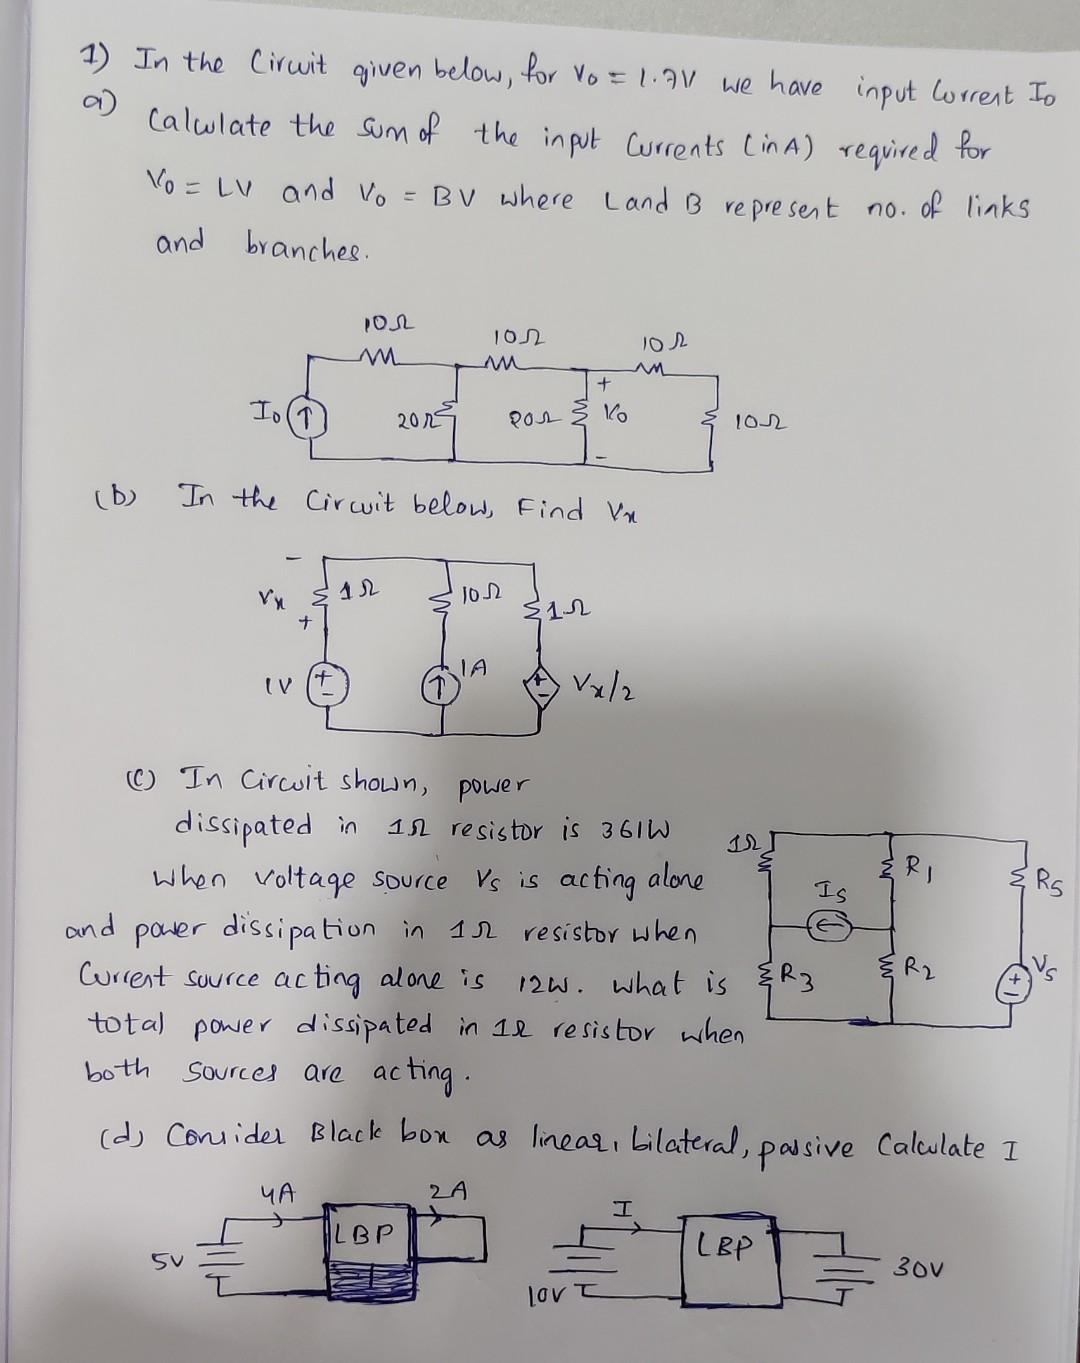 1) In the Circuit given below, for Vo = 1.7V we have input Current Io
a) Calculate the sum of the input Currents (in A) required for
Vo = LV and Vo = BV where L and B represent no. of links
and branches.
10Ω
10Ω
10Ω
Io
20Ω
20Ω
+
Vo
-
10Ω
(b) In the Circuit below, Find Vx
-
Vx
+
1Ω
10Ω
1Ω
1V
+
-
1A
+
-
Vx/2
(C) In Circuit shown, power
dissipated in 1Ω resistor is 361W
when voltage source Vs is acting alone
and power dissipation in 1Ω resistor when
Current source acting alone is 12W. what is
total power dissipated in 1Ω resistor when
both sources are acting.
1Ω
R1
Rs
Is
R3
R2
+
-
Vs
(d) Consider Black box as linear, bilateral, passive Calculate I
4A
2A
5V
LBP
I
10V
LBP
30V